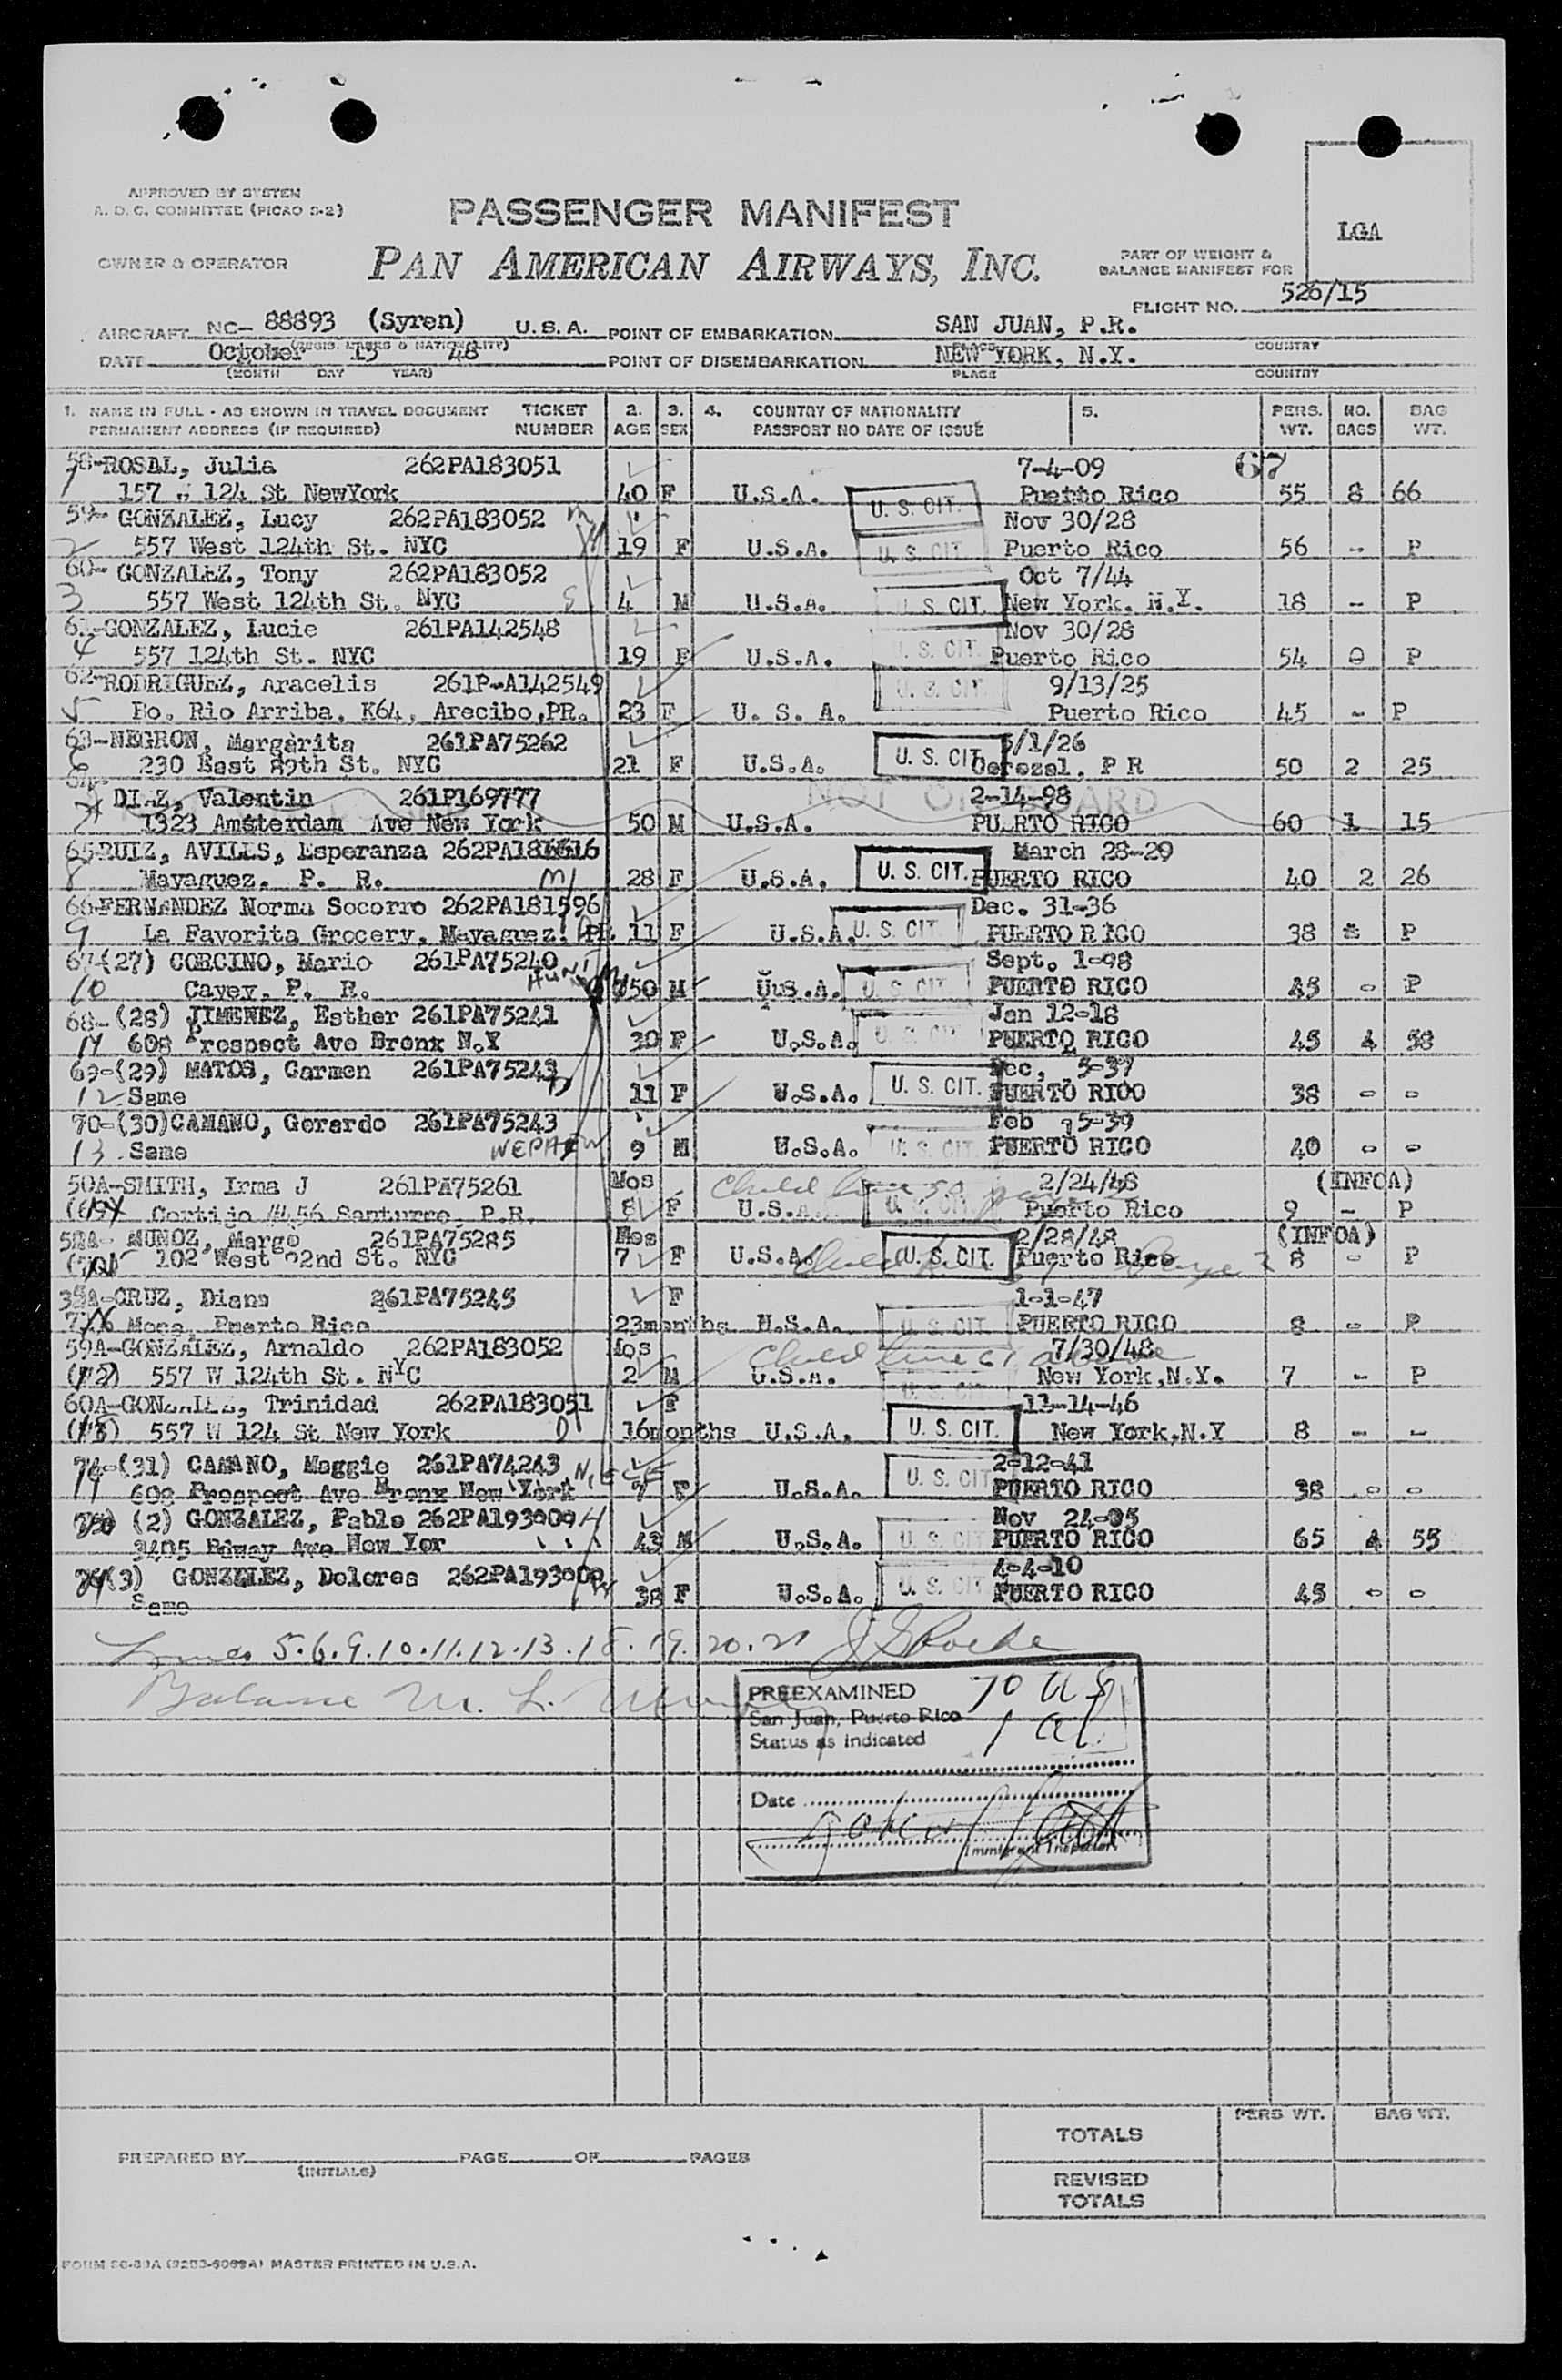 APPROVED BY SYSTEM
A. D. C. COMMITTEE (PICAO S-2)
PASSENGER MANIFEST
LGA
OWNER & OPERATOR
PAN AMERICAN AIRWAYS, INC.
PART OF WEIGHT &
BALANCE MANIFEST FOR
FLIGHT NO. 526/15
AIRCRAFT NC- 88893 (Syren) U.S.A. POINT OF EMBARKATION SAN JUAN, P.R.
(REGIS. MARKS & NATIONALITY) PLACE COUNTRY
DATE October 15 48 POINT OF DISEMBARKATION NEW YORK, N.Y.
(MONTH DAY YEAR) PLACE COUNTRY
1. NAME IN FULL - AS SHOWN IN TRAVEL DOCUMENT TICKET 2. 3. 4. COUNTRY OF NATIONALITY 5. PERS. NO. BAG
PERMANENT ADDRESS (IF REQUIRED) NUMBER AGE SEX PASSPORT NO DATE OF ISSUE WT. BAGS WT.
58-ROSAL, Julia 262PA183051 7-4-09 67
1 157 W 124 St NewYork 40 F U.S.A. U. S. CIT. Puerto Rico 55 8 66
59- GONZALEZ, Lucy 262PA183052 Nov 30/28
2 557 West 124th St. NYC 19 F U.S.A. U. S. CIT Puerto Rico 56 - P
60- GONZALEZ, Tony 262PA183052 Oct 7/44
3 557 West 124th St. NYC S 4 M U.S.A. U. S. CIT. New York. N.Y. 18 - P
61-GONZALEZ, Lucie 261PA142548 Nov 30/28
4 557 124th St. NYC 19 F U.S.A. U. S. CIT Puerto Rico 54 0 P
62-RODRIGUEZ, Aracelis 261P-A142549 U. S. CIT. 9/13/25
5 Bo. Rio Arriba, K64, Arecibo,PR. 23 F U. S. A. Puerto Rico 45 - P
63-NEGRON, Margarita 261PA75262 5/1/26
6 230 East 89th St. NYC 21 F U.S.A. U. S. CIT Corozal, P R 50 2 25
64- DIAZ, Valentin 261P169777 NOT ON BOARD 2-14-98
7 1323 Amsterdam Ave New York 50 M U.S.A. PUERTO RICO 60 1 15
65-RUIZ, AVILES, Esperanza March 28-29
8 Mayaguez. P. R. 28 F U.S.A. U. S. CIT. PUERTO RICO 40 2 26
66-FERNANDEZ Norma Socorro 262PA181596 Dec. 31-36
9 La Favorita Grocery, Mayaguez, PR. 11 F U.S.A. U. S. CIT. PUERTO RICO 38 P
67-(27) CORCINO, Mario 261PA75240 Sept. 1-98
10 Cayey, P. R. 50 M U.S.A. U. S. CIT PUERTO RICO 45 0 P
68-(28) JIMENEZ, Esther 261PA75241 Jan 12-18
608 Prospect Ave Bronx N.Y 30 F U.S.A. U. S. CIT PUERTO RICO 45 4 58
69-(29) MATOS, Carmen 261PA75243 Dec, 5-37
12 Same 11 F U.S.A. U. S. CIT. PUERTO RICO 38 0 0
70-(30)CAMANO, Gerardo 261PA75243 Feb 5-39
13 Same NEPHEW 9 M U.S.A. U. S. CIT. PUERTO RICO 40 0 0
50A-SMITH, Irma J 261PA75261 Mos Child line 50 2/24/48 (INFOA)
Cortijo #456 Santurce, P.R. 8 F U.S.A. U. S. CIT Puerto Rico 9 - P
MUNOZ, Margo 261PA75285 Mos 2/28/48 (INFOA)
102 West 92nd St. NYC 7 F U.S.A. U. S. CIT. Puerto Rico 8 - P
CRUZ, Diana 261PA75245 F 1-1-47
Moca, Puerto Rico 23months U.S.A. U. S. CIT PUERTO RICO 8 0 P
59A-GONZALEZ, Arnaldo 262PA183052 Mos Child line 61 above 7/30/48
557 W 124th St. NYC 2 M U.S.A. New York,N.Y. 7 - P
60A-GONZALEZ, Trinidad 262PA183051 F 11-14-46
557 W 124 St New York 16months U.S.A. U. S. CIT. New York,N.Y 8 - -
(31) CAMANO, Maggie 261PA74243 NIECE 2-12-41
608 Prospect Ave Bronx New York 7 F U.S.A. U. S. CIT PUERTO RICO 38 0 0
(2) GONZALEZ, Pablo 262PA193009 H Nov 24-05
3405 Bdway Ave New Yor 43 M U.S.A. U. S. CIT PUERTO RICO 65 4 55
(3) GONZALEZ, Dolores 262PA193009 W 4-4-10
Same 38 F U.S.A. U. S. CIT PUERTO RICO 45 0 0
Lines 5.6.9.10.11.12.13.18.19.20.21
Balance M. L.
PREEXAMINED 70 US
San Juan, Puerto Rico
Status as indicated 1 al
Date
Immigrant Inspector
PERS WT. BAG WT.
TOTALS
PREPARED BY PAGE OF PAGES
(INITIALS)
REVISED
TOTALS
MASTER PRINTED IN U.S.A.